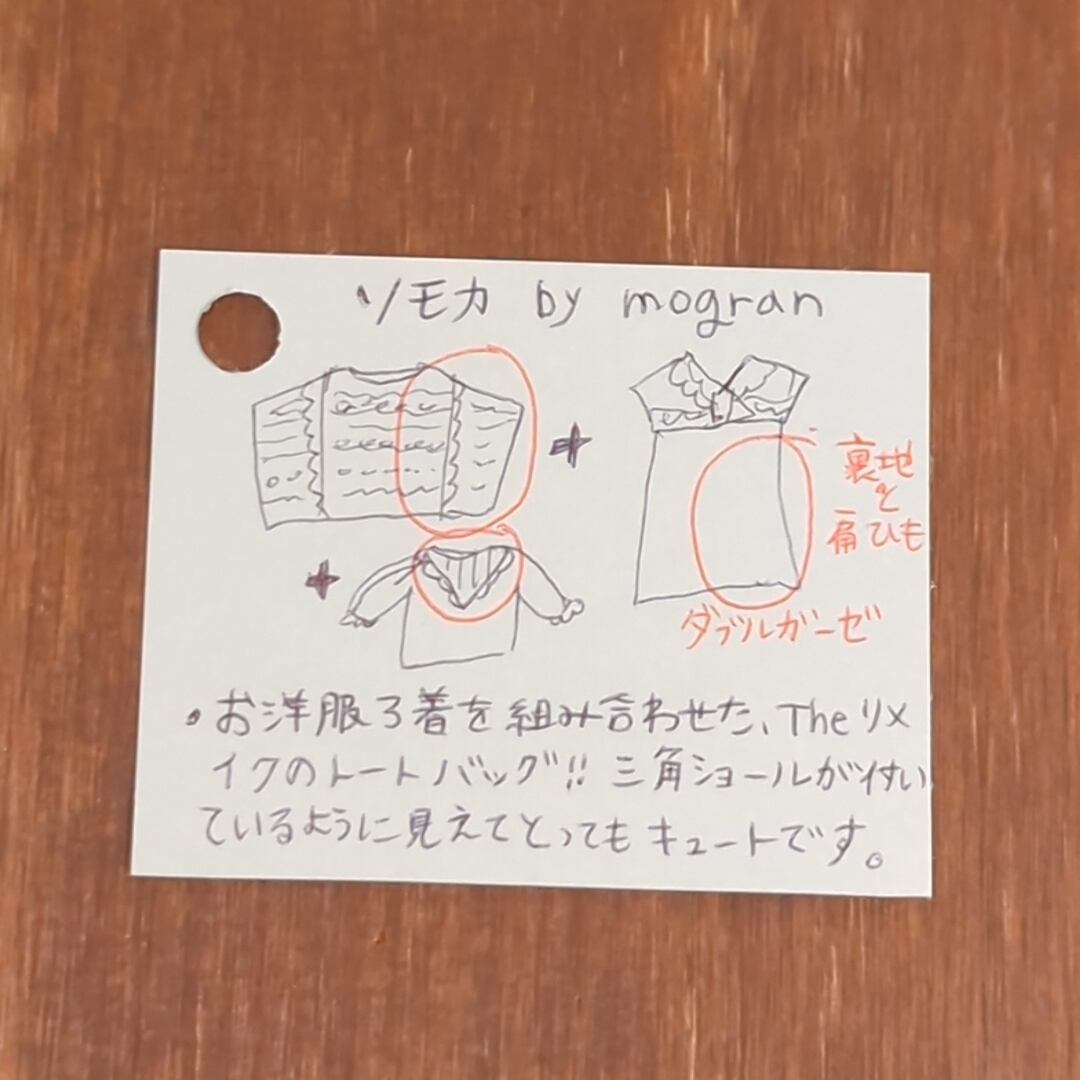 ソモカ by mogran
+
裏地
と
肩ひも
+
ダブルガーゼ
・お洋服3着を組み合わせた、Theリメ
イクのトートバッグ!! 三角ショールが付い
ているように見えてとってもキュートです。